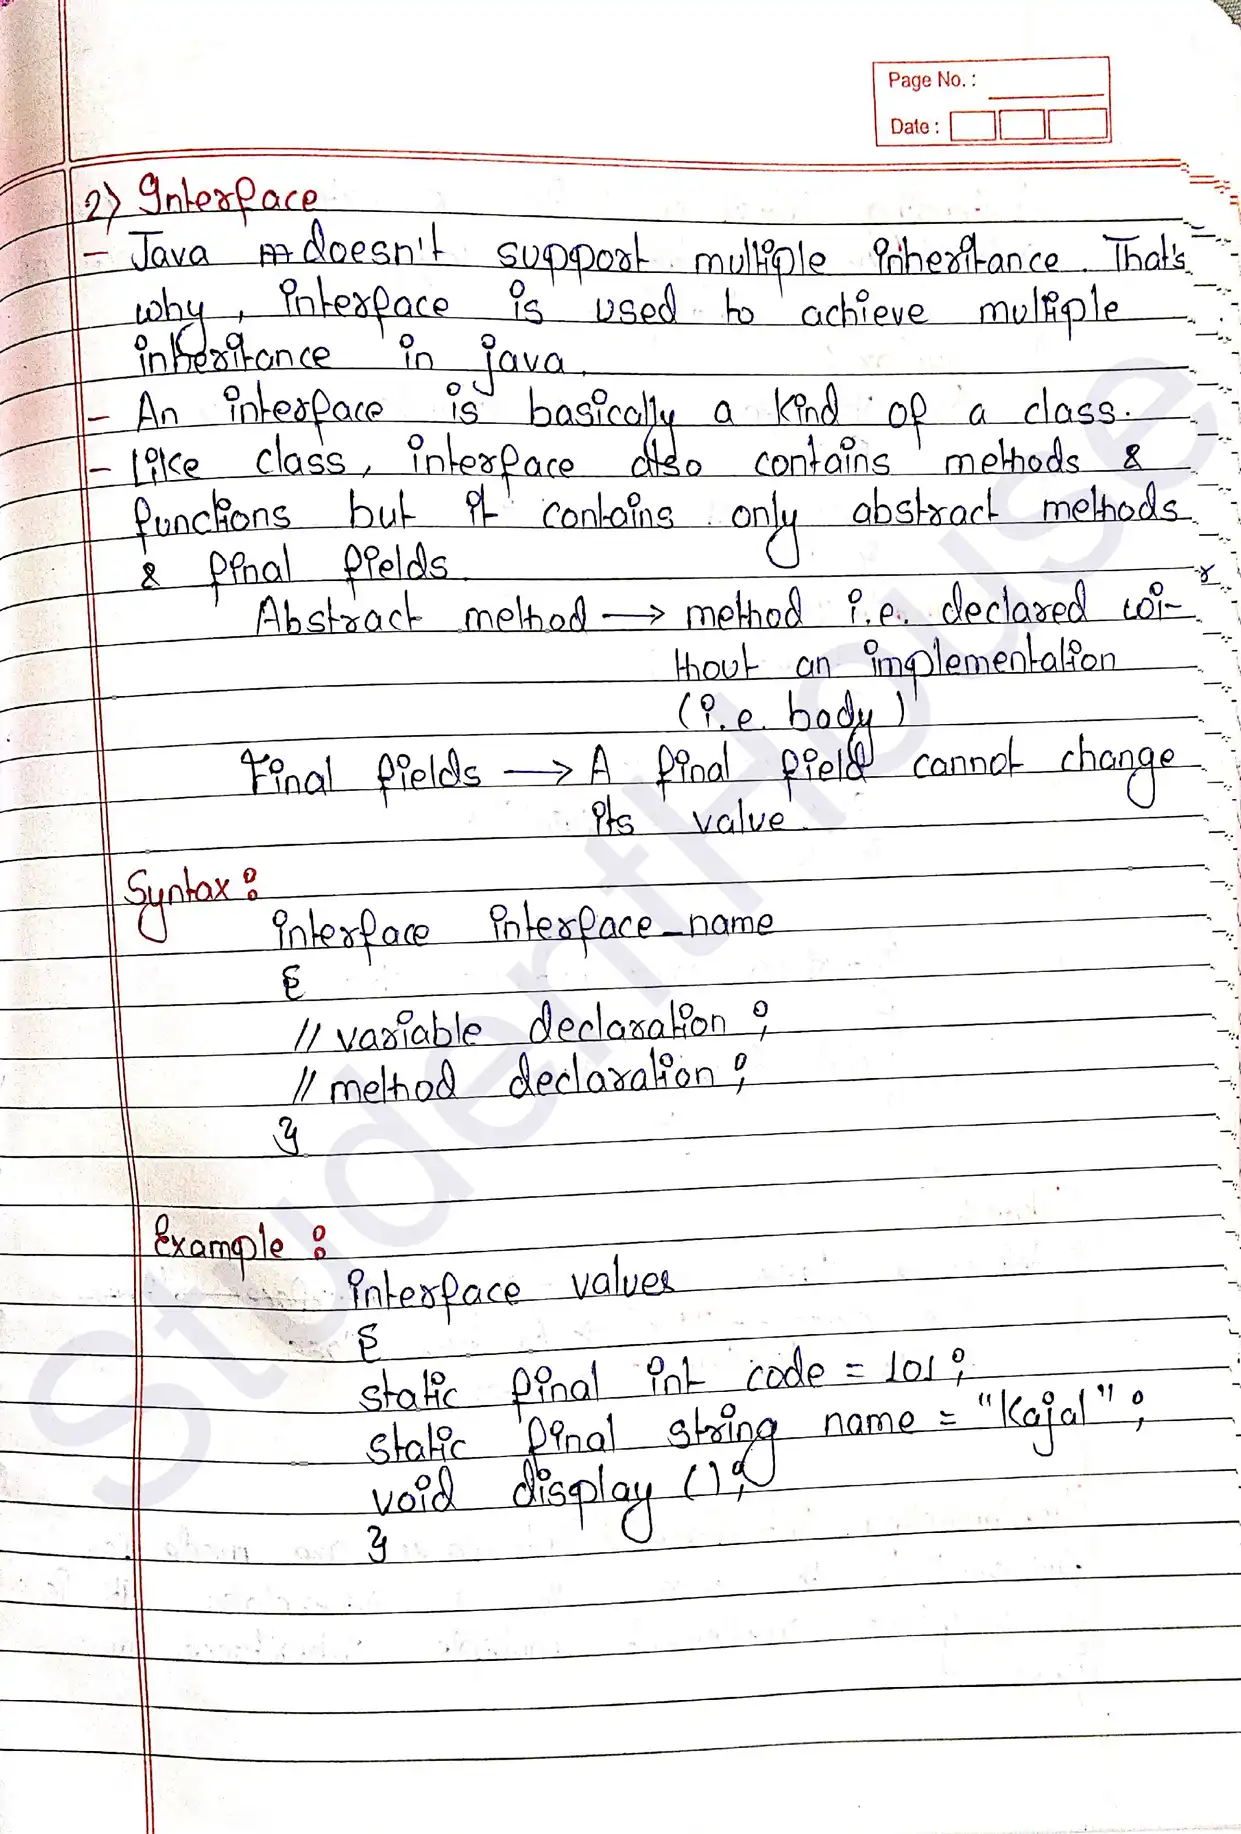 Page No. :
Date :
2) Interface
- Java doesn't support multiple inheritance. That's
why, interface is used to achieve multiple
inheritance in java.
- An interface is basically a kind of a class.
- Like class, interface also contains methods &
functions but it contains only abstract methods
& final fields
Abstract method → method i.e. declared wi-
thout an implementation
(i.e. body)
Final fields → A final field cannot change
its value.
Syntax :
interface interface_name
{
// variable declaration ;
// method declaration ;
}
Example :
interface values
{
static final int code = 101 ;
static final string name = "Kajal" ;
void display () ;
}
StudentHouse